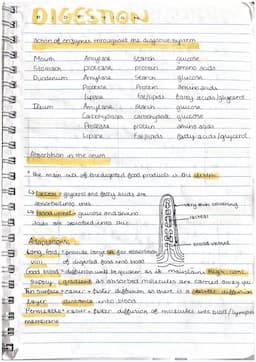 DIGESTION
Action of enzymes throughout the digestive system
Mouth Amylase Starch glucose
Stomach protease protein amino acids
Duodenum Amylase Starch glucose
Protease Protein Amino acids
Lipase Fat/lipids Fatty acids/glycerol
Ileum Amylase Starch glucose
Carbohydrase carbohydrate glucose
Protease protein amino acids
Lipase Fat/lipids fatty acids/glycerol
Absorption in the ileum
* The main site of the digested food products is the
↳ lacteal = glycerol and fatty acids are
absorbed into
↳ Blood vessel = glucose and amino
acids are absorbed into this
very thin covering
lacteal
blood vessel
Adaptations
Long, fold, villi = provide large SA for
of digested food into blood
Good blood supply = diffusion will be quicker as it maintains high conc.
gradient as absorbed molecules are carried away
Thin surface layer = faster diffusion as there is a shorter diffusion
distance into blood
Permeable membrane = faster diffusion of molecules into blood / lymph